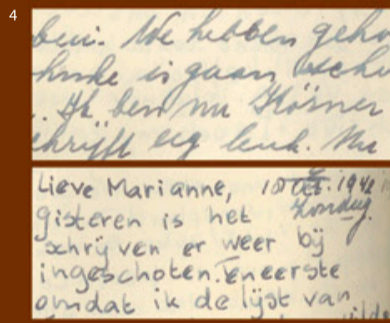 4
ben. We hebben geho
is gaan schu
Ik ben nu Körner
chrijft erg leuk. Nu
Lieve Marianne, 18 Oct. 1942
Zondag.
gisteren is het
schrijven er weer bij
ingeschoten. Teneerste
omdat ik de lijst van